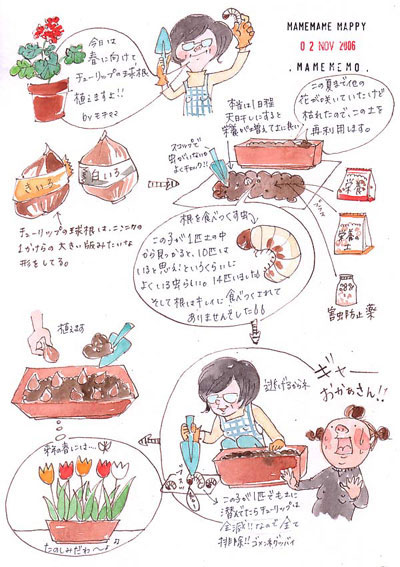 MAMEMAME MAPPY
02 NOV 2006
.MAMEMEMO.
今日は
春に向けて
チューリップの球根
植えますよ!!
by モチママ
この夏まで他の
花が咲いていたけど
枯れたので、この土を
再利用します。
本当は1日程
天日干しにすると
スコップで
虫がいないか
よくチェック!!
きいろ
白いろ
チューリップの球根は、ニンニクの
1かけらの大きい版みたいな
形をしてる。
根を食べつくす虫
この子が1匹土の中
から見つかると、10匹は
いると思え!というくらいに
よくいる虫らしい。14匹いました
そして根はキレイに食べつくされて
ありませんでした
害虫防止薬
植えます
来年の春には…
たのしみだわ〜♪
逃げるからネ
ギャー
おかあさん!!
この子が1匹でも土に
潜んでたらチューリップは
全滅!!なので全て
排除!!ゴメンネグッバイ